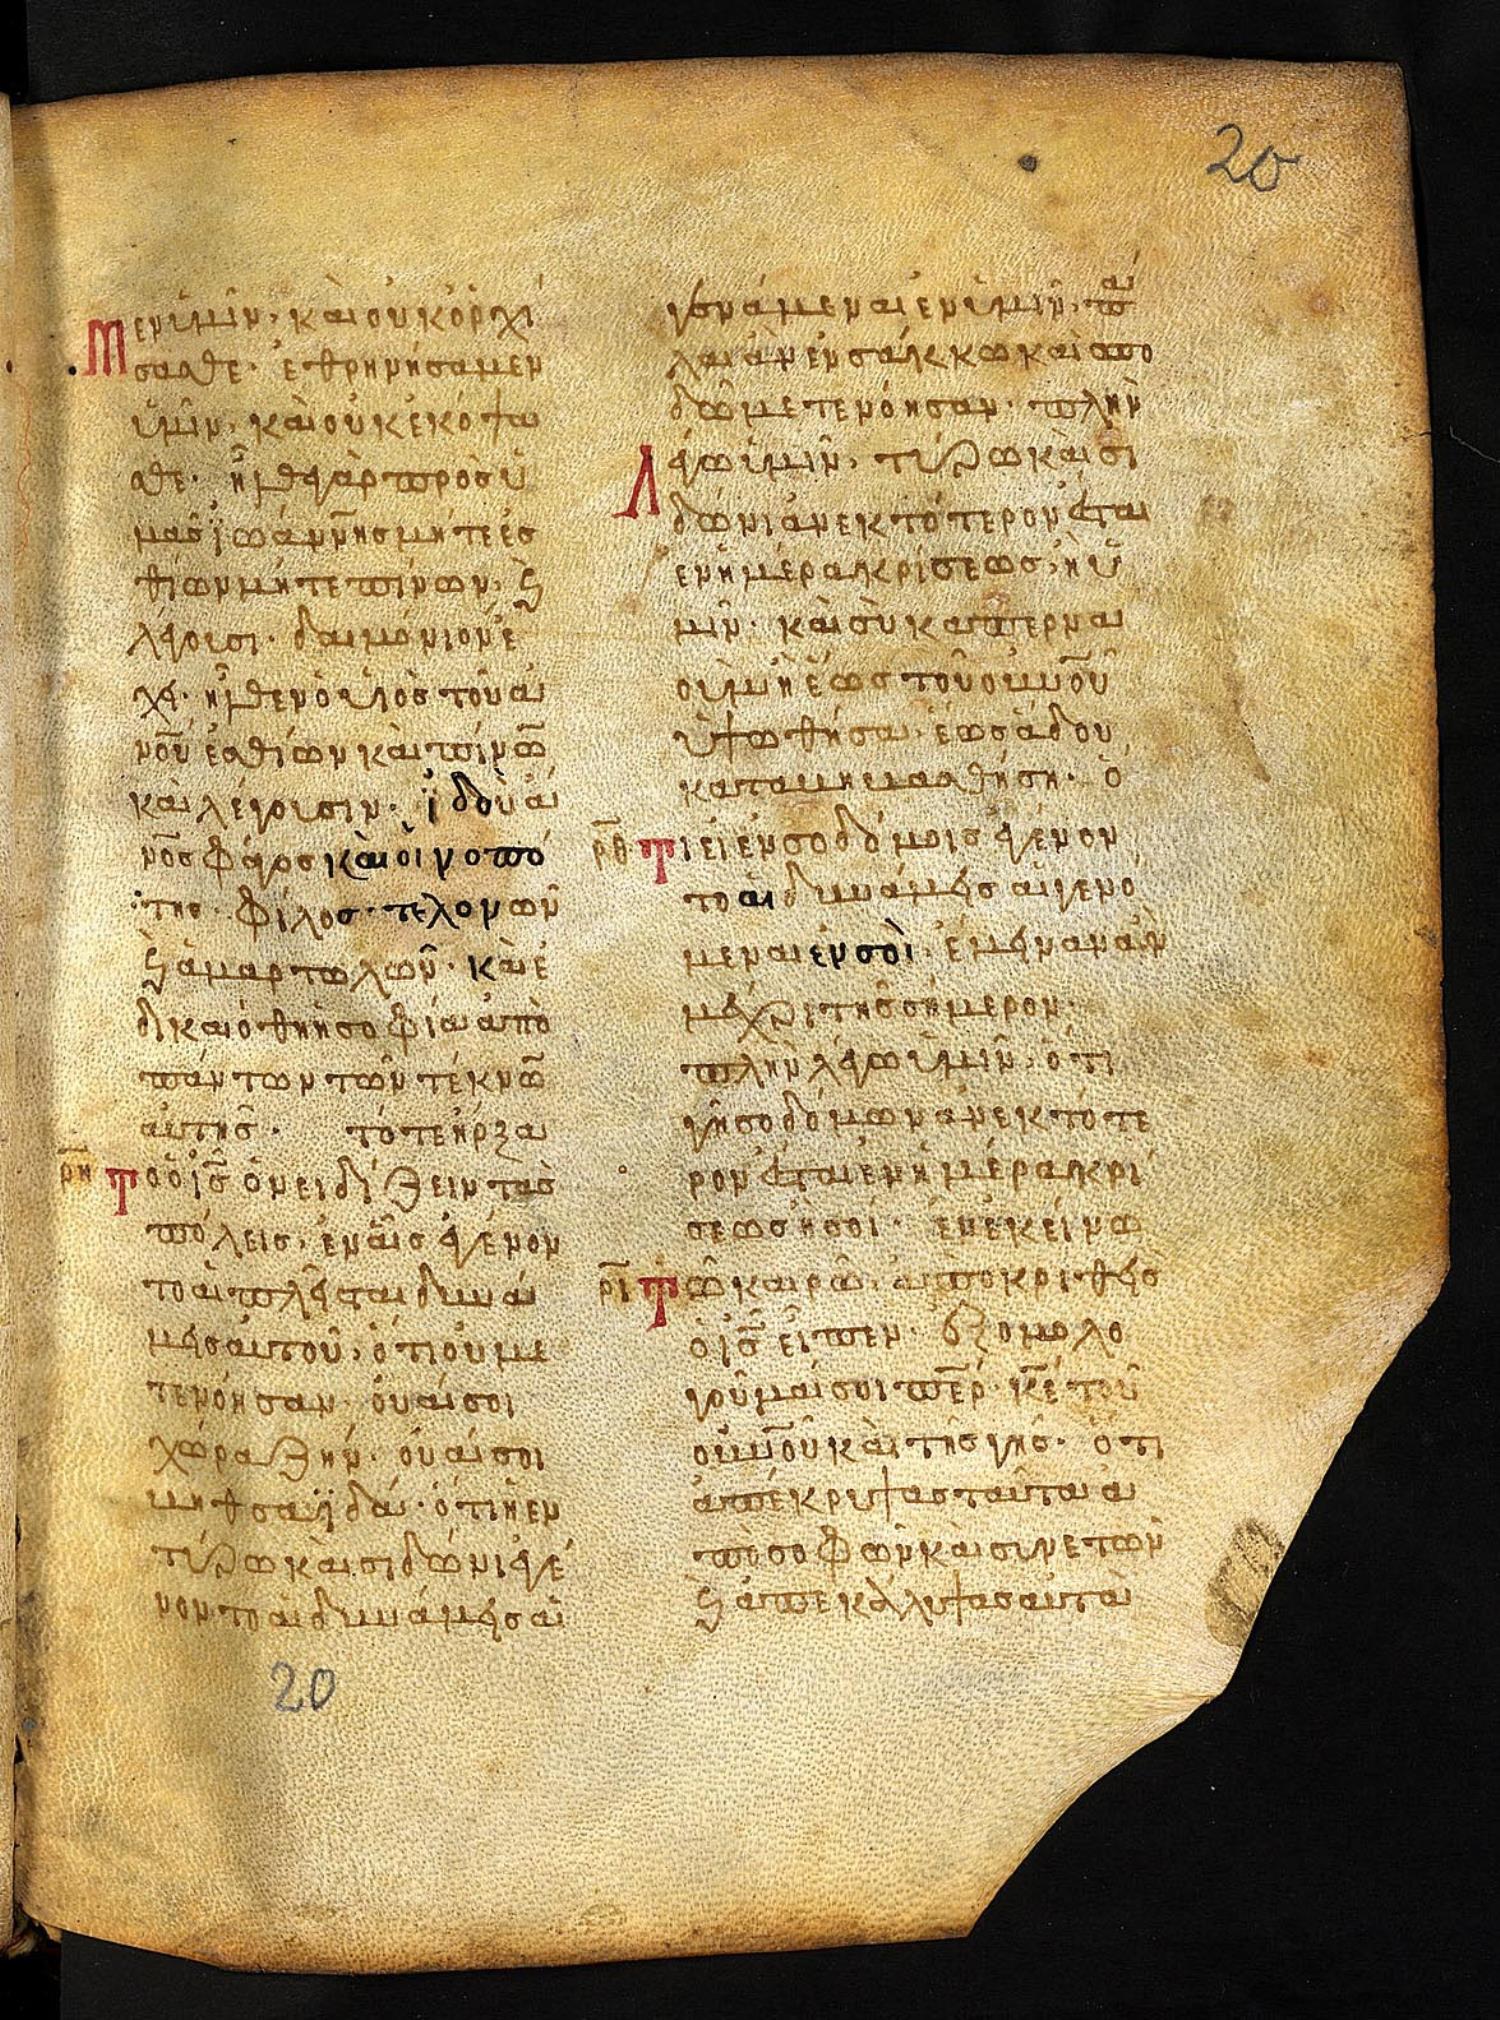 20
μεν ὑμῖν· καὶ οὐκ ὀρχή
σασθε· ἐθρηνήσαμεν
ὑμῖν· καὶ οὐκ ἐκόψα
σθε· ἦλθε γὰρ πρὸς ὑ
μᾶς ἰωάννης μήτε ἐσ
θίων μήτε πίνων, ϗ
λέγουσι· δαιμόνιον ἔ
χει· ἦλθεν ὁ υἱὸς τοῦ α
νου ἐσθίων καὶ πίνω
καὶ λέγουσιν· ἰδοὺ α
νος φάγος καὶ οἰνοπό
της· φίλος τελονῶν
ϗ ἁμαρτωλῶν· καὶ ἐ
δικαιόθη ἡ σοφία ἀπὸ
πάντων τῶν τέκνω
αὐτῆς· τότε ἤρξα
ρη το ὁ ις ὀνειδίζειν τὰς
πόλεις· ἐν αἷς ἐγένον
το αἱ πλεῖσται δυνά
μεις αὐτοῦ, ὅτι οὐ με
τενόησαν· οὐαί σοι
χώραζην· οὐαί σοι
μηθσαϊδά· ὅτι ἢ ἐν
τύρω καὶ σιδώνι ἐγέ
νοντο αἱ δυνάμεις αἱ
γενάμεναι ἐν ὑμῖν· πα
λαι ἂν ἐν σάκκω καὶ σπο
δῶ μετενόησαν· πλὴν
λέγω ὑμῖν, τύρω καὶ σι
δώνι ἀνεκτότερον ἔσται
ἐν ἡμέραι κρίσεως, ἢ ὑ
μῖν· καὶ σὺ καπερνα
οὺμ ἡ ἕως τοῦ ουνου
ὑψωθήσα ἕως ἅδου
καταμημασθήση· ὅ
ρθ τι εἰ ἐν σοδόμοις ἐγένον
το αἱ δυνάμεις αἱ γενό
μεναι ἐν σοὶ· ἔμειναν ἂν
μέχρι τῆς σήμερον·
πλὴν λέγω ὑμῖν, ὅτι
γῆ σοδόμων ἀνεκτότε
ρον ἔσται ἐν ἡμέραι κρί
σεως ἢ σοί· ἐν ἐκείνω
ρι τῶ καιρῶ· ἀποκριθεὶς
ὁ ις εἶπεν· ἐξομολο
γοῦμαί σοι περ· κε τοῦ
ουνου καὶ τῆς γῆς· ὅτι
ἀπέκρυψας ταῦτα ἀ
πὸ σοφῶν καὶ συνετῶν
ϗ ἀπεκάλυψας αὐτὰ
20